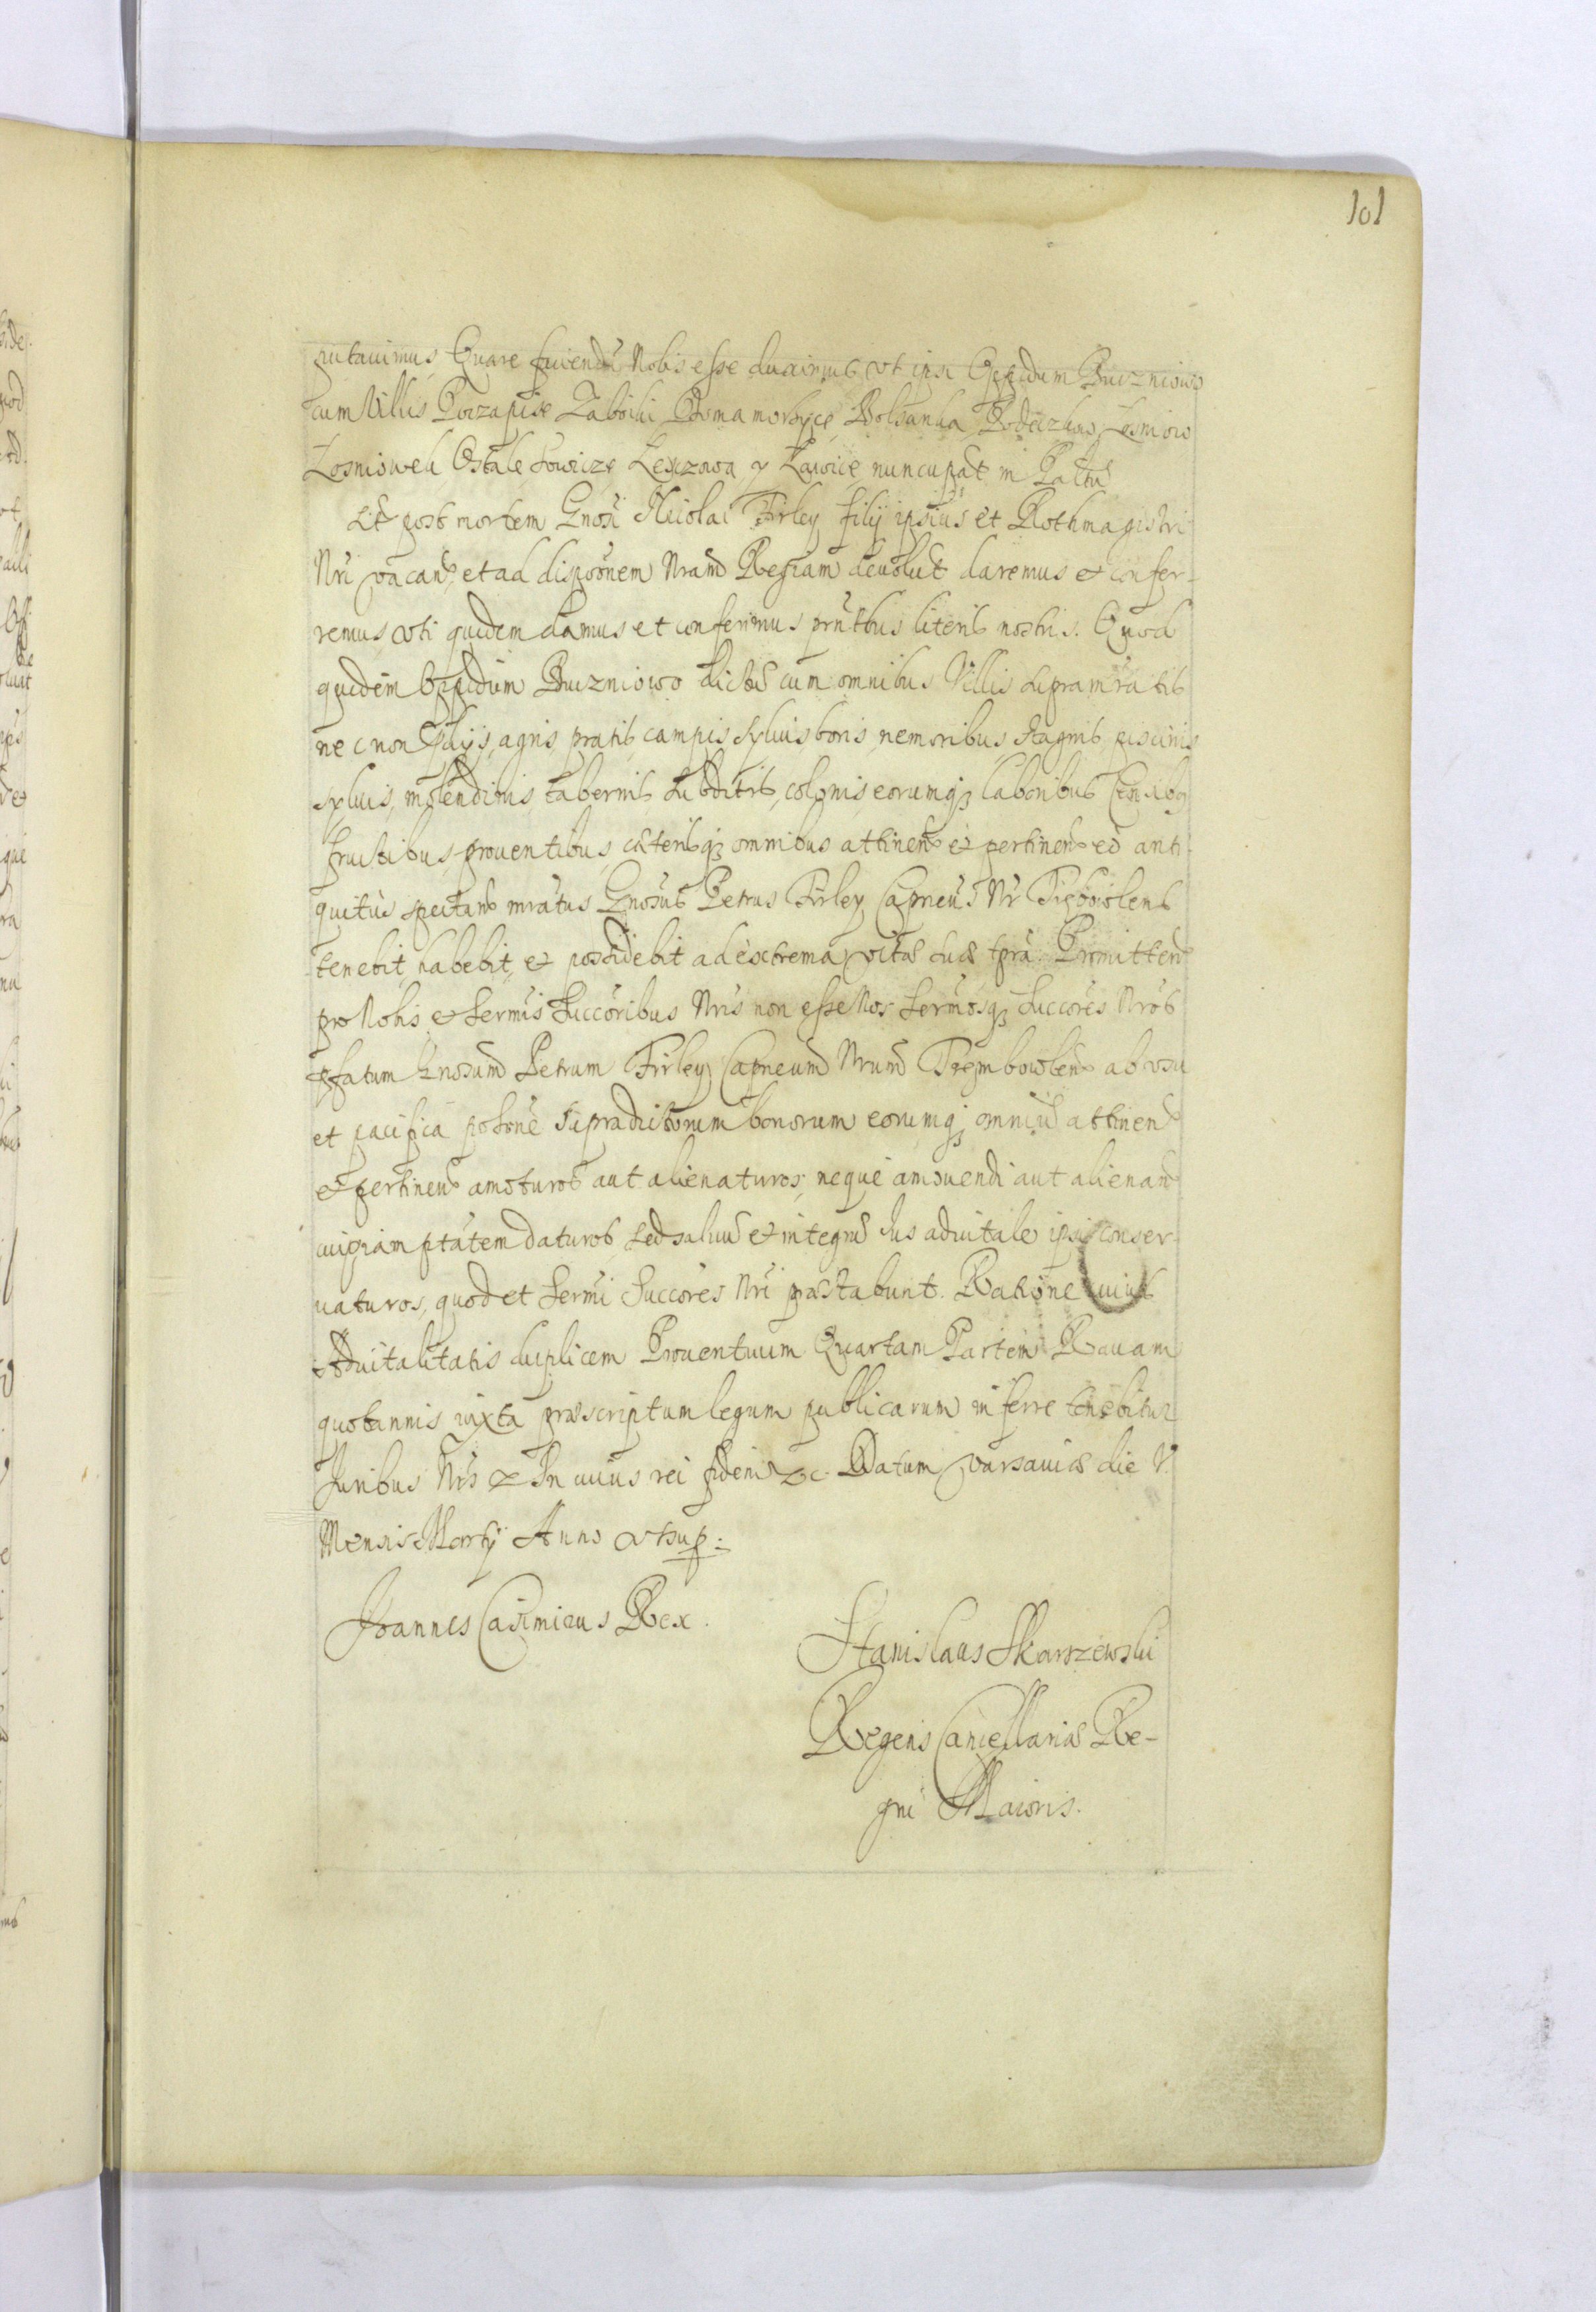 101
putauimus, Quare faciendũ Nobis esse duximus vt ipsi Oppidum Buczniowo
cum Villis Poczapise Zaboiki Domamorÿcz Bolsanka Lesniow
Losniowek nuncupat in Pal
Et post mortem Gnosi Nicolai Firley filij ipsius et Rothmagistri
Nri vacan et ad dispoonem Nram Regiam deuolut daremus et confer-
remus, vti quidem damus et conferimus pñtibus literis nostris. Quod
quidem Oppidum Buczniowo dictũ cum omnibus Villis supramratis
nec non agris pratis campis syluis boris nemoribus stagnis piscinis
syluis, molendinis, tabernis subditis, colonis eorumq; laboribus
fructibus, prouentibus, cæterisq; omnibus attinen et pertinen eo anti-
quitus spectan mratus Gnosus Petrus Firley Capneus Nr
tenebit, habebit, et possidebit ad extrema vitæ suæ tpra. Promitten
pro Nobis et Sermis Succoribus Nris non esse Nos Sermosq; Succores Nros
pfatum Gnosum Petrum Firley Capneum Nrum Trembowlen ab vsu
et pacifica possone supradictorum bonorum eorumq; omniũ attinen
et pertinen amoturos aut alienaturos, neque amouendi aut alienan
cuipiam ptatem daturos, sed saluũ et integrũ Ius aduitale ipsi conser-
uaturos, quod et Sermi Succores Nri præstabunt. Ratione cuius
Aduitalitatis duplicem Prouentuum Quartam Partem Rauam
quotannis iuxta præscriptum legum publicarum inferre tenebitur
Iuribus Nris &. In cuius rei fidem &c. Datum Varsauiæ die V.
Mensis Martij Anno vtsup:
Joannes Casimirus Rex.
Stanislaus Skarszewski
Regens Cancellariæ Re-
gni Maioris.